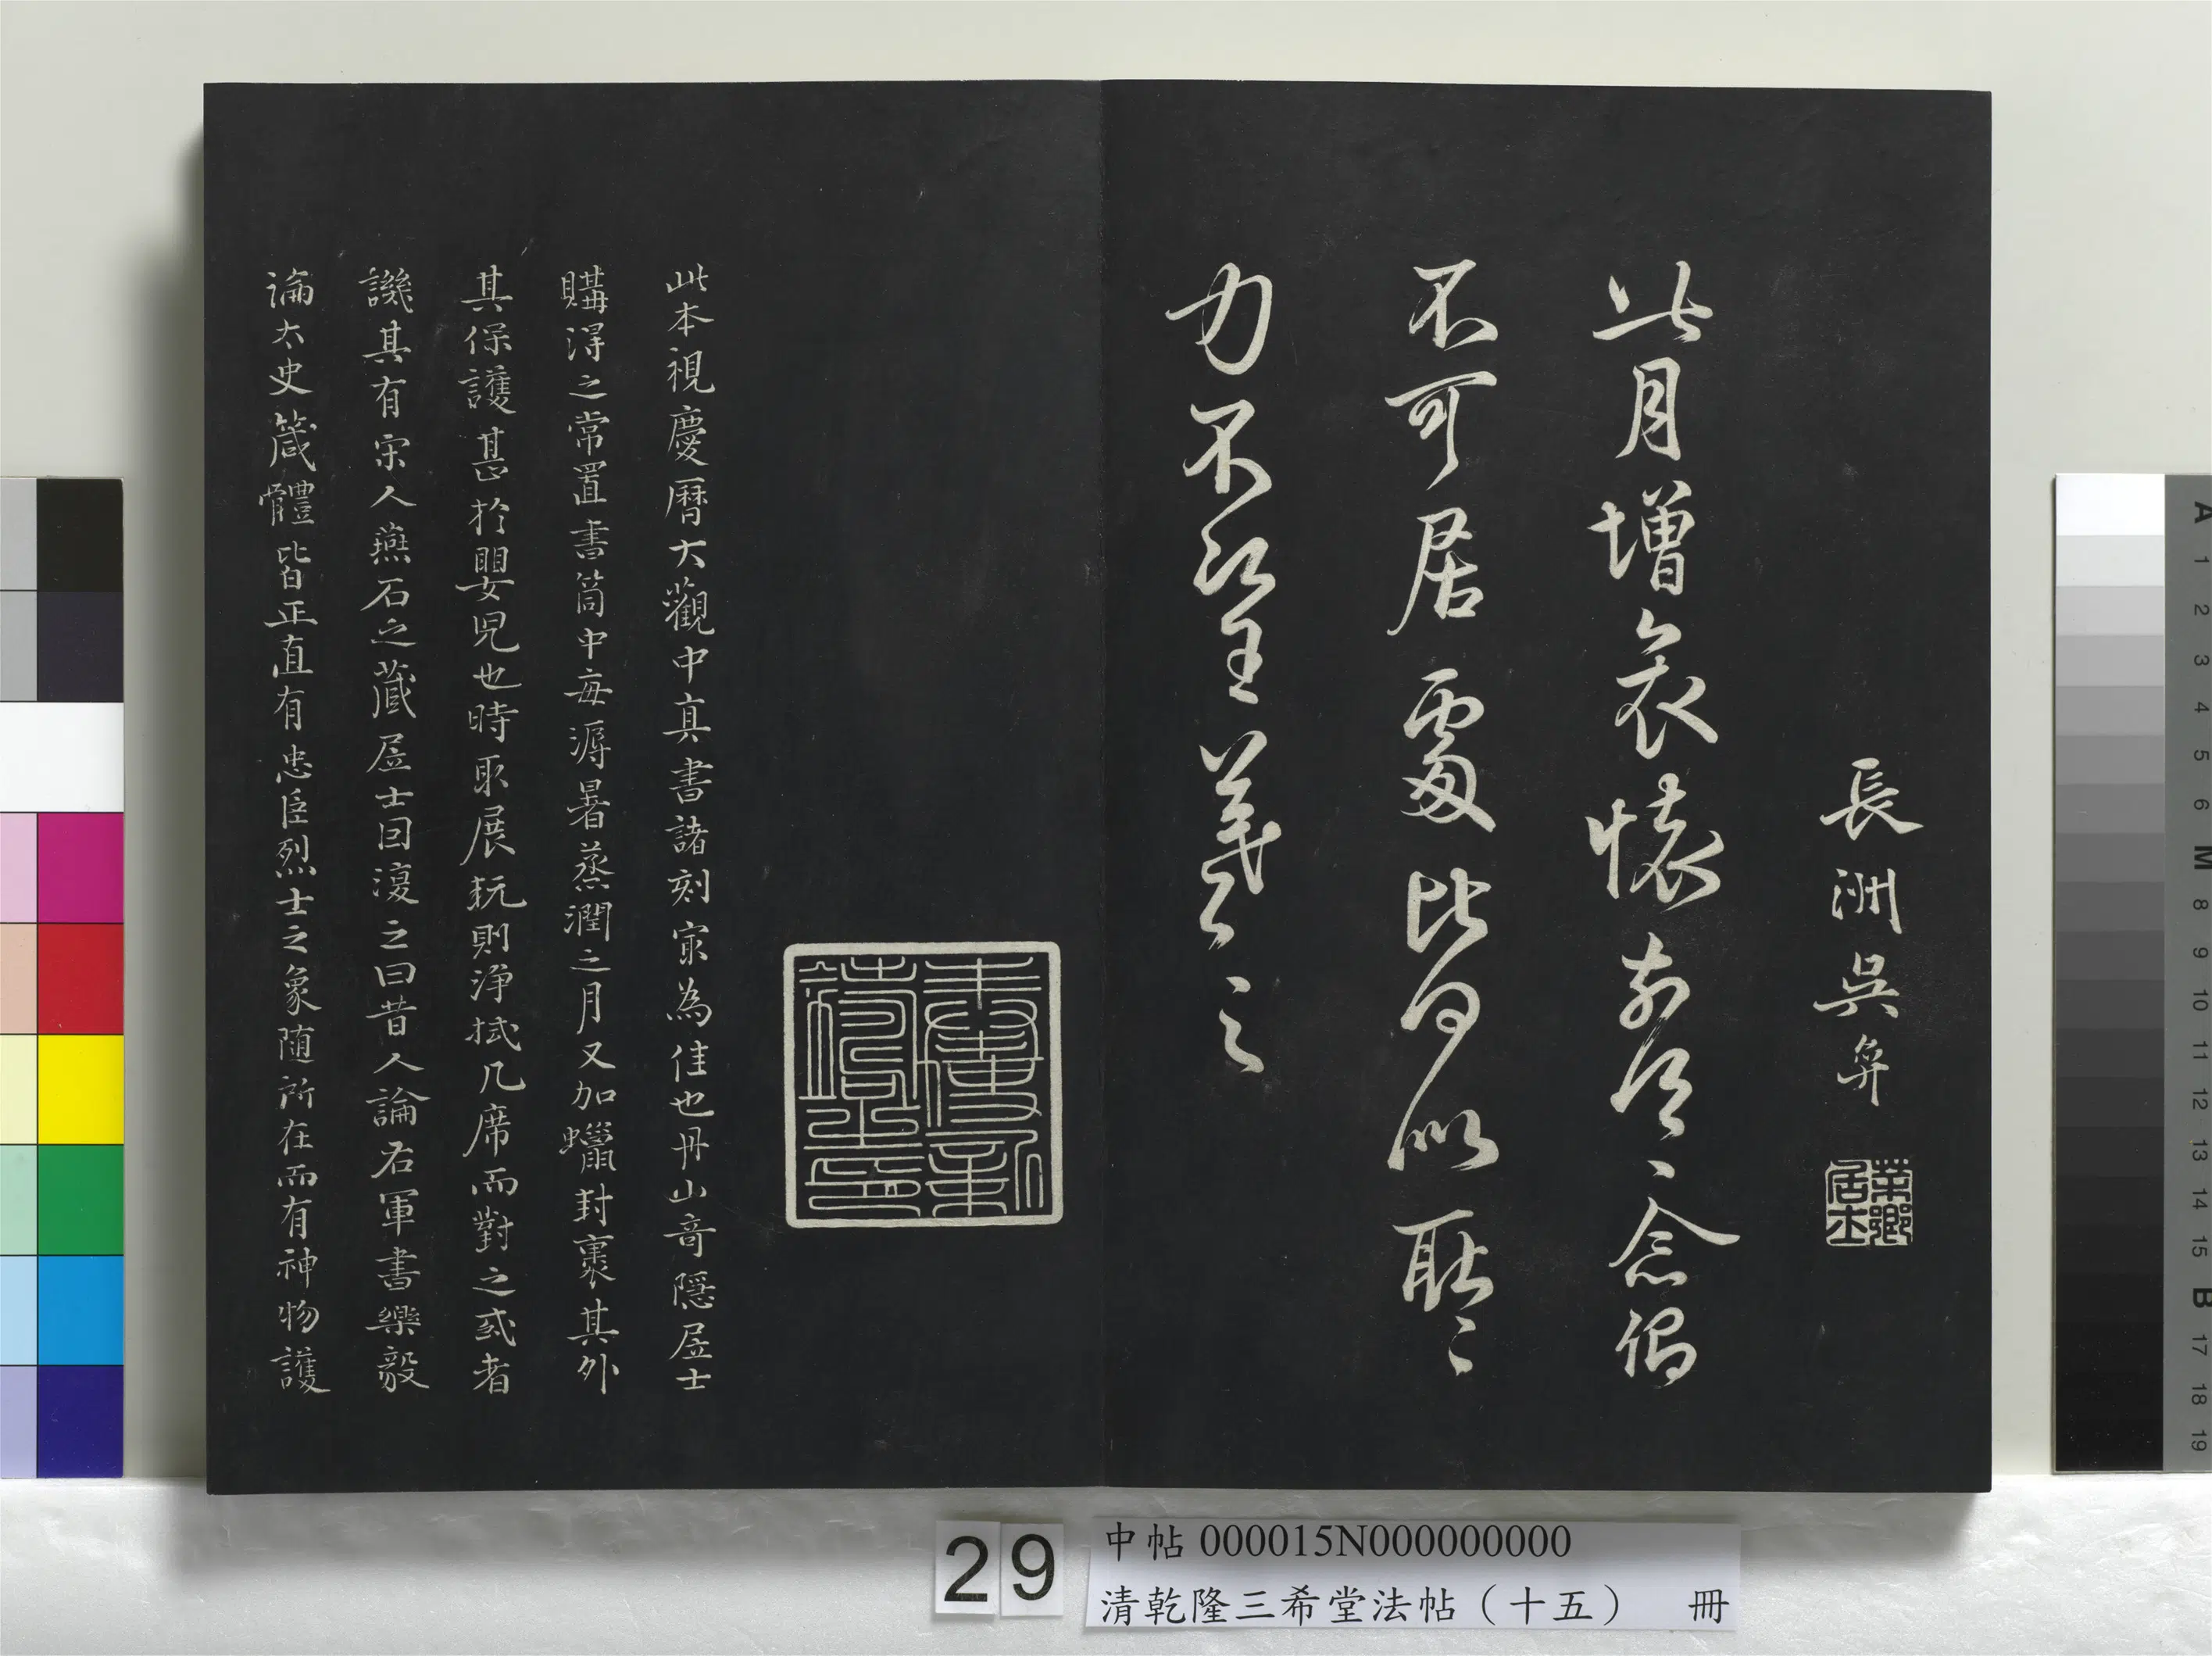 長洲吳弈
葉鄉居士
此月增哀懷前得〻念偈
不可居處比自似耿〻
力不次王羲之〻
此本視慶曆大觀中真書諸刻㝡為佳也丹山奇隱居士
購得之常置書筒中每溽暑蒸潤之月又加蠟封裹其外
其保護甚於嬰兒也時取展玩則淨拭几席而對之或者
譏其有宋人燕石之藏居士因復之曰昔人論右軍書樂毅
論太史箴體皆正直有忠臣烈士之象随所在而有神物護
29
中帖 000015N000000000
清乾隆三希堂法帖（十五） 冊
A 1 2 3 4 5 6 M 8 9 10 11 12 13 14 15 B 17 18 19